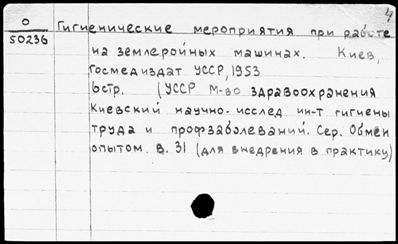 4
О
50236
Гигиенические мероприятия при работе
на землеройных машинах. Киев,
Госмедиздат УССР, 1953
6стр. (УССР М-во здравоохранения
Киевский научно-исслед ин-т гигиены
труда и профзаболеваний. Сер. Обмен
опытом. В. 31 (для внедрения в практику)